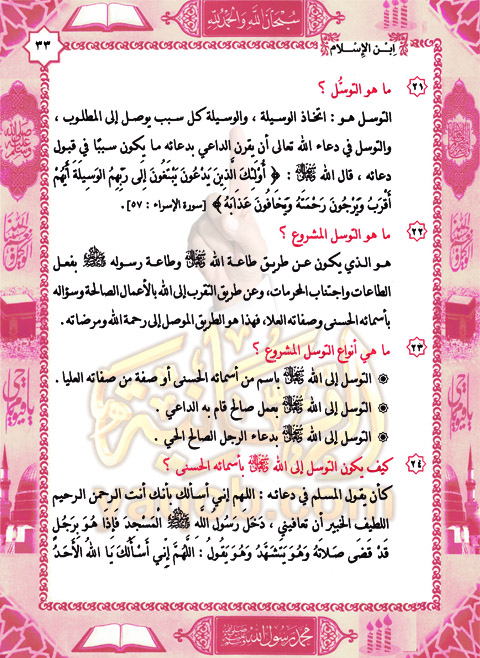 سبحان الله والحمد لله
ابن الإسلام
٣٣
٢١ ما هو التوسُّل ؟
التوسل هو : اتخاذ الوسيلة ، والوسيلة كل سبب يوصل إلى المطلوب ،
والتوسل في دعاء الله تعالى أن يقرن الداعي بدعائه ما يكون سببًا في قبول
دعائه ، قال الله ﷻ : ﴿ أُوْلَئِكَ الَّذِينَ يَدْعُونَ يَبْتَغُونَ إِلَى رَبِّهِمُ الْوَسِيلَةَ أَيُّهُمْ
أَقْرَبُ وَيَرْجُونَ رَحْمَتَهُ وَيَخَافُونَ عَذَابَهُ ﴾ [سورة الإسراء : ٥٧] .
٢٢ ما هو التوسل المشروع ؟
هو الذي يكون عن طريق طاعة الله ﷻ وطاعة رسوله ﷺ بفعل
الطاعات واجتناب المحرمات ، وعن طريق التقرب إلى الله بالأعمال الصالحة وسؤاله
بأسمائه الحسنى وصفاته العلا، فهذا هو الطريق الموصل إلى رحمة الله ومرضاته .
٢٣ ما هي أنواع التوسل المشروع ؟
التوسل إلى الله ﷻ باسم من أسمائه الحسنى أو صفة من صفاته العليا .
التوسل إلى الله ﷻ بعمل صالح قام به الداعي .
التوسل إلى الله ﷻ بدعاء الرجل الصالح الحي .
٢٤ كيف يكون التوسل إلى الله ﷻ بأسمائه الحسنى ؟
كأن يقول المسلم في دعائه : اللهم إني أسألك بأنك أنت الرحمن الرحيم
اللطيف الخبير أن تعافيني ، دَخَلَ رَسُولُ اللَّهِ ﷺ الْمَسْجِدَ فَإِذَا هُوَ بِرَجُلٍ
قَدْ قَضَى صَلَاتَهُ وَهُوَ يَتَشَهَّدُ وَهُوَ يَقُولُ : اللَّهُمَّ إِنِّي أَسْأَلُكَ يَا اللهُ الْأَحَدُ
محمد رسول الله ﷺ